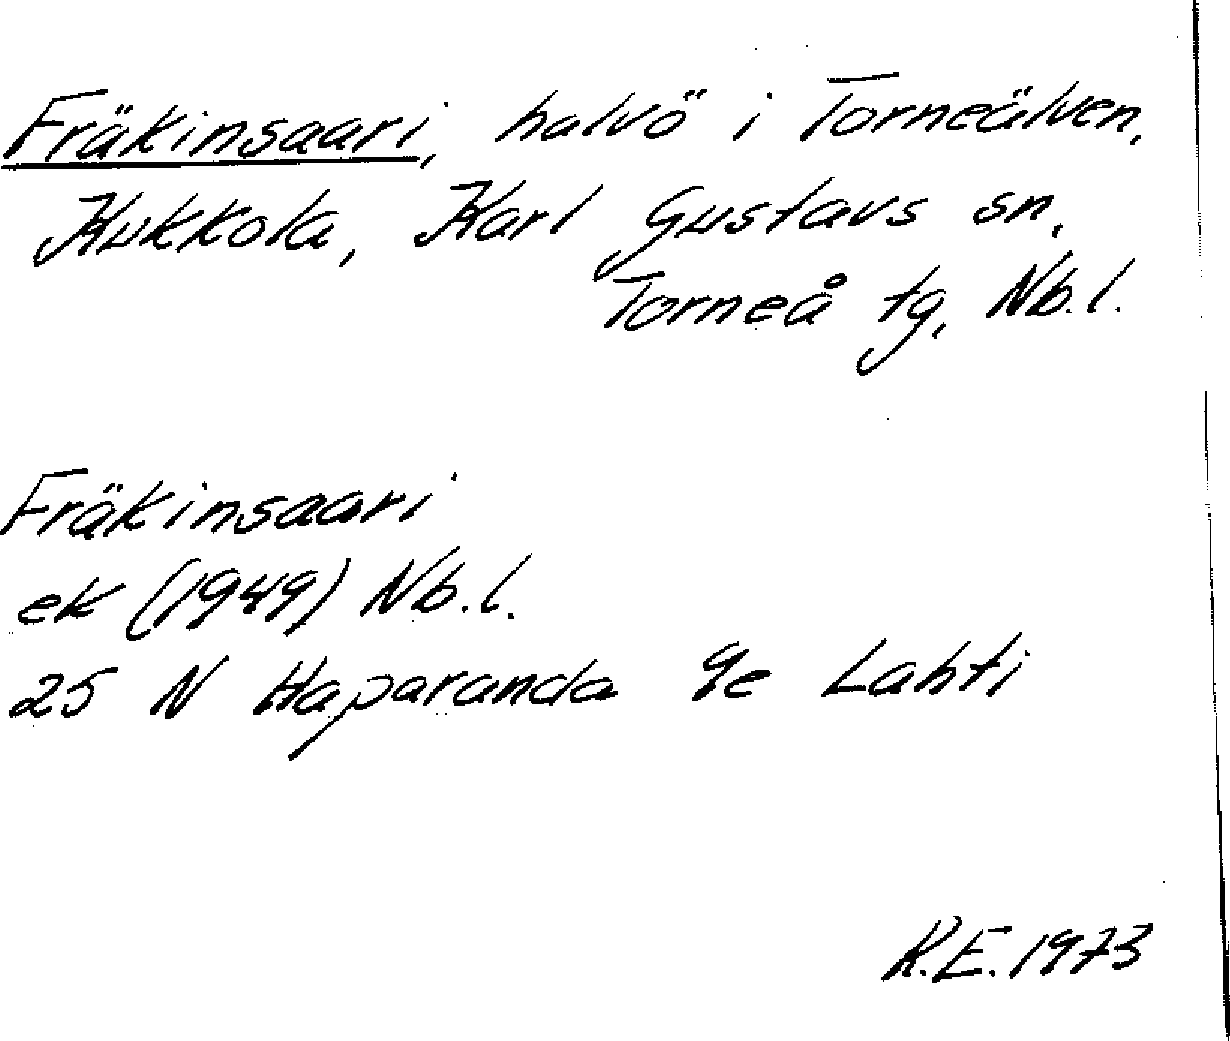 Fräkinsaari, halvö i Torneälven,
Kukkola, Karl Gustavs sn,
Torneå tg, Nb.l.
Fräkinsaari
ek (1949) Nb.l.
25 N Haparanda 9e Lahti
K.E. 1973